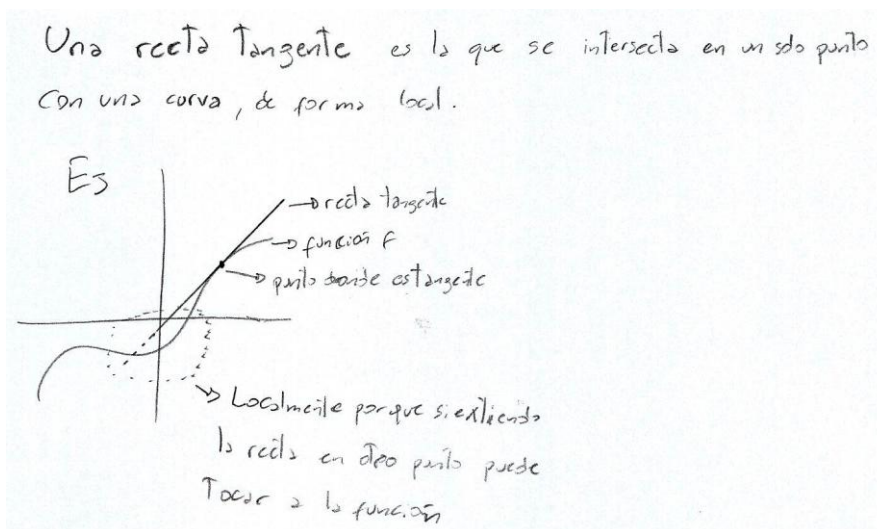 Una recta Tangente es la que se intersecta en un solo punto
con una curva, de forma local.
Ej
recta tangente
función f
punto donde es tangente
Localmente porque si extiendo
la recta en otro punto puede
Tocar a la función